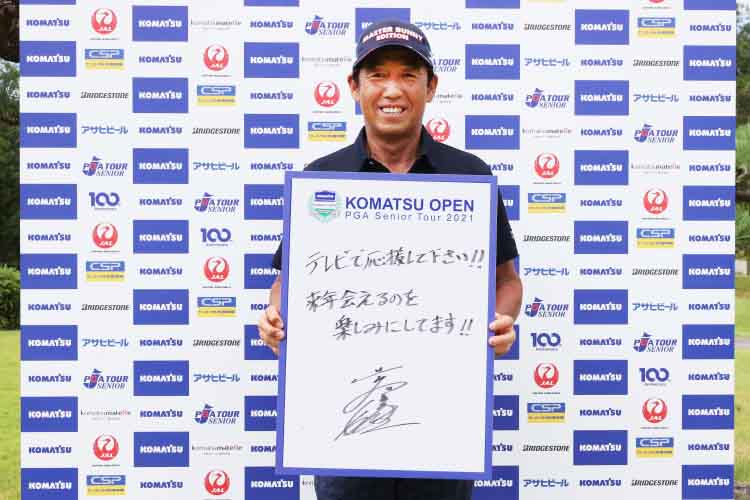 MASTER BUNNY
EDITION
KOMATSU OPEN
PGA Senior Tour 2021
テレビで応援して下さい!!
来年会えるのを
楽しみにしてます!!
KOMATSU
komatsu matelle
PGA TOUR
SENIOR
アサヒビール
BRIDGESTONE
CSP
JAL
100